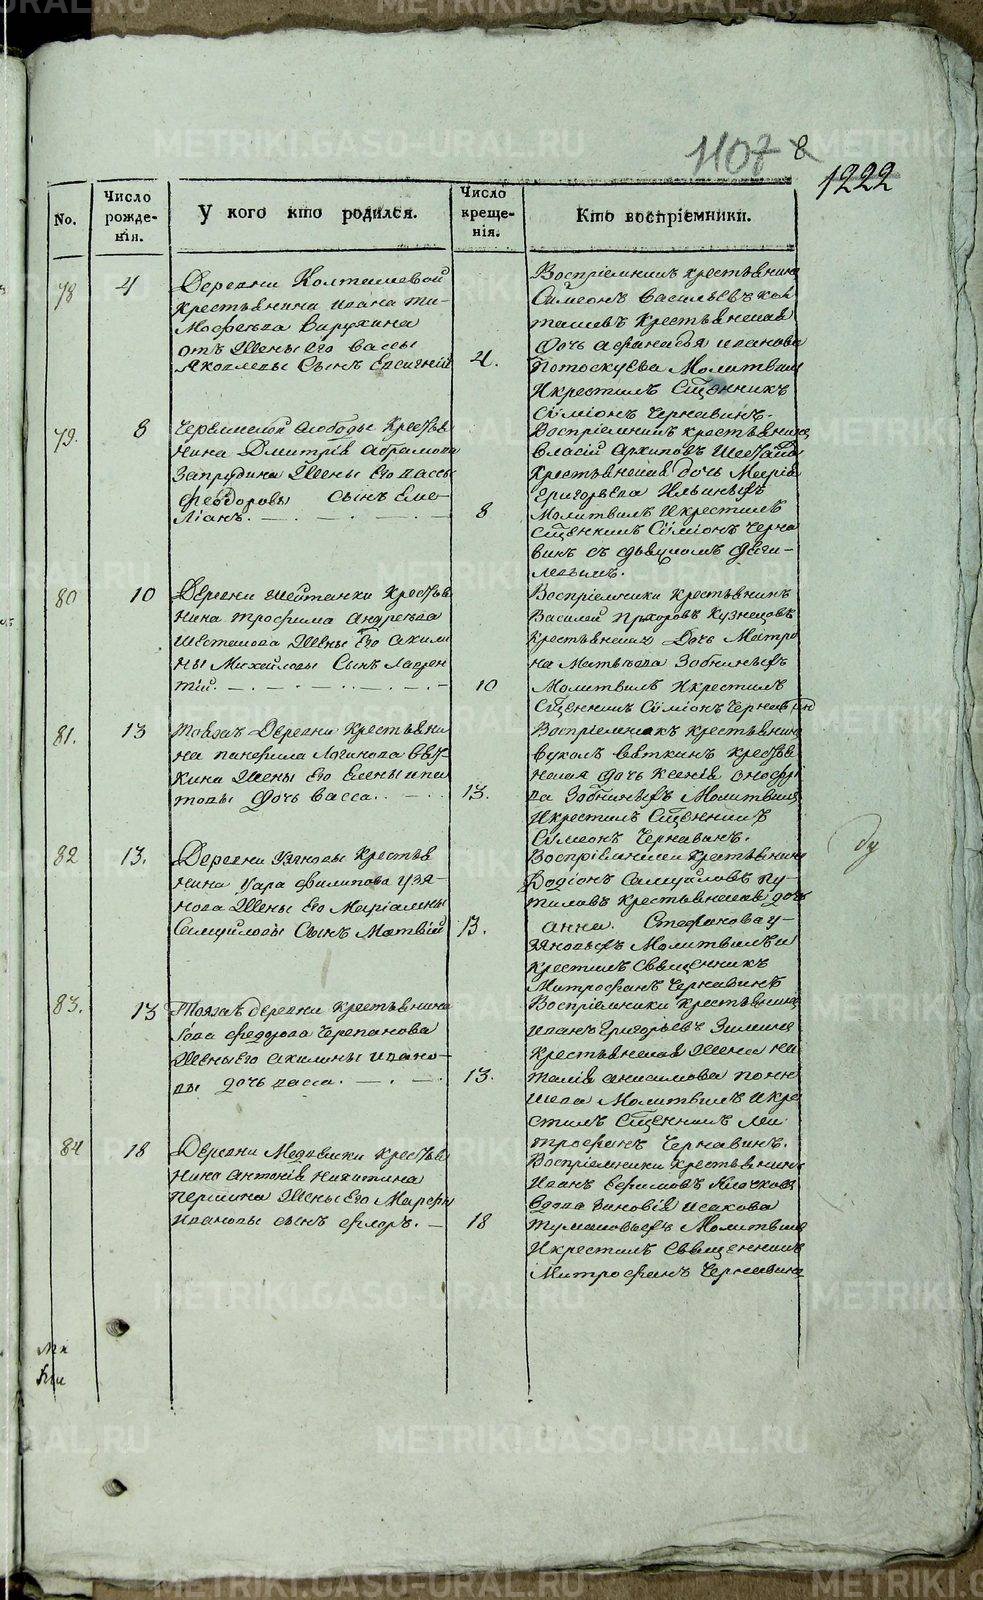 METRIKI.GASO-URAL.RU
1107 8
1222
No.
Число рожде-нія.
У кого кто родился.
Число креще-нія.
Кто воспріемники.
78
4
Деревни Колташевой
крестьянина Ивана Ти-
мофеева Вирухина
отъ жены его Вассы
Яковлевы сынъ Евсигній
4.
Воспріемникъ крестьянинъ
Симеонъ Васильевъ Кол
ташевъ крестьянская
дочь Афанасья Иванова
Потоскуева Молитвилъ
и крестилъ Сщенникъ
Симіонъ Чернавинъ.
79.
8
слободы кресть
нина Дмитрія Абрамова
Запрудина жены его Вассы
Феодоровы сынъ Еме-
ліанъ.
8
Воспріемникъ крестьянинъ
Власій Архиповъ
крестьянская дочь Марія
Григорьева Ильиныхъ
Молитвилъ и крестилъ
Сщенникъ Симіонъ Черна
винъ съ
80
10
Деревни Шайтанки кресть
нина Трофима Андреева
Шестакова жены его Акили
ны Михайловы сынъ Лаврен
тій.
10
Воспріемники крестьянинъ
Василій Прохоровъ Кузнецовъ
крестьянская дочь Матро
на Матвеева Зобниныхъ
Молитвилъ и крестилъ
Сщенникъ Симіонъ Чернавин
81.
13
Тояжъ деревни крестьяни
на Панфила Логинова Вят
кина жены его Елены Ипа
товы дочь Васса.
13.
Воспріемникъ крестьянинъ
Вуколъ Вяткинъ кресть
нская дочь Ксенія Онофрі
ва Зобниныхъ Молитвилъ
и крестилъ Сщенникъ
Симеонъ Чернавинъ.
82
13.
Деревни Узяновы кресть
нина Уара Филипова Узя-
нова жены его Маріамны
Самуйловы сынъ Матвій
13.
Воспріемники крестьянинъ
Родіонъ Самуйловъ Пу-
тиловъ крестьянская дочь
Анна Стефанова У-
зяновыхъ Молитвилъ и
крестилъ Священникъ
Митрофанъ Чернавинъ
83.
13
Тояжъ деревни крестьянина
Федорова Черепанова
жены его Акилины Ивано-
вы дочь Васса.
13.
Воспріемники крестьянинъ
Иванъ Григорьевъ Зиминъ
крестьянская жена На
талія Анисимова
Молитвилъ и кре
стилъ Сщенникъ Ми
трофанъ Чернавинъ.
84
18
Деревни Медведки кресть
нина Антонія Никитина
Першина жены его Марфы
Ивановы сынъ Флоръ.
18
Воспріемники крестьянинъ
Иванъ Ефимовъ Клочковъ
вдова Зиновія Исакова
Тумановыхъ Молитвилъ
и крестилъ Священникъ
Митрофанъ Чернавинъ